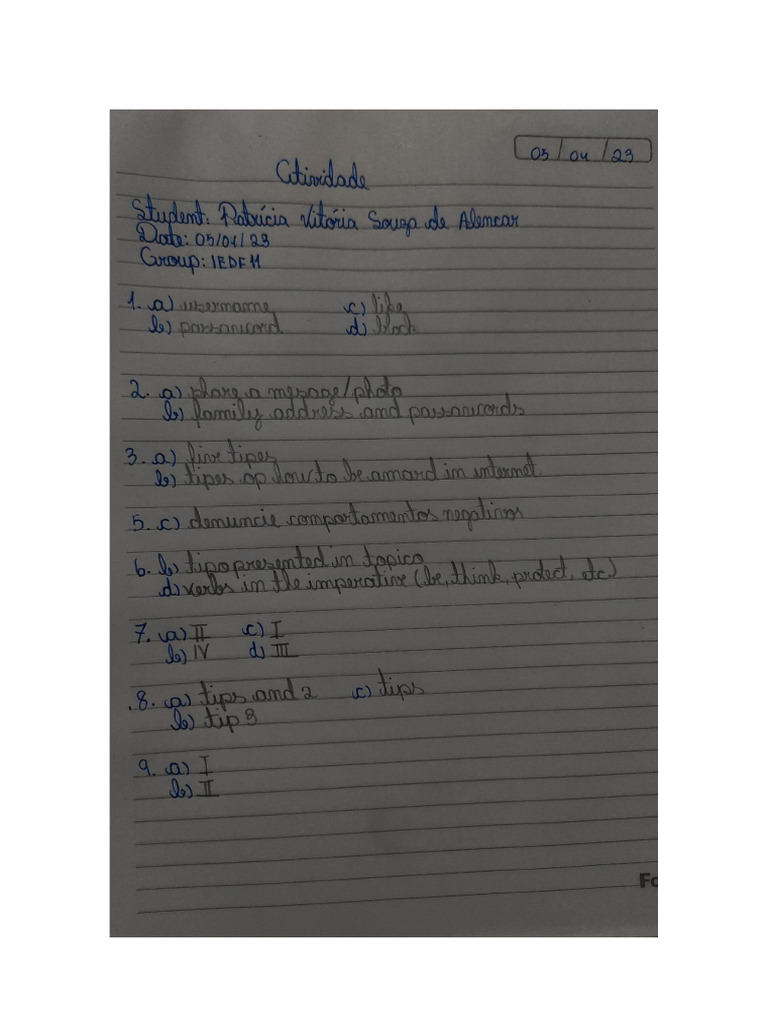 05/04/23
Atividade
Student: Patrícia Vitória Souza de Alencar
Date: 05/04/23
Group: IEDF11
1. a) username c) like
b) password d) block
2. a) phare a mesage/photo
b) family address and passwords
3. a) five tipes
b) tipes op how to be amard in internet
5. c) denuncie comportamentos negativos
6. b) tipo presented in topico
d) verbs in the imperative (be, think, protect, etc.)
7. a) II c) I
b) IV d) III
8. a) tips and 2 c) tips
b) tip 3
9. a) I
b) II
Fo